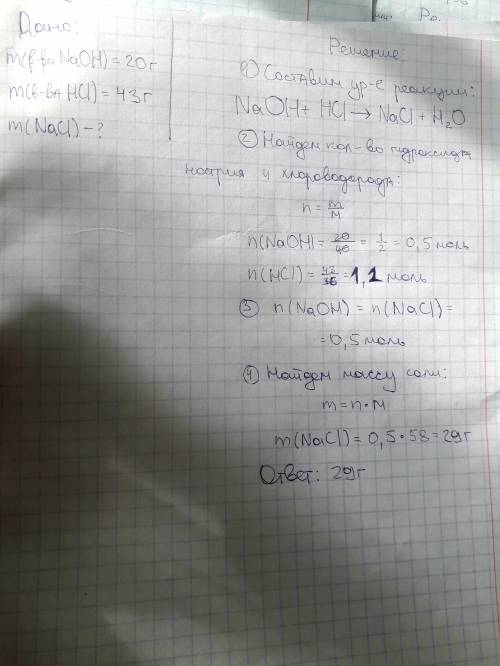 Дано:
m(в-ва NaOH) = 20г
m(в-ва HCl) = 43г
m(NaCl) - ?
Po.
Решение:
1) Составим ур-е реакции:
NaOH + HCl → NaCl + H₂O
2) Найдем кол-во гидроксида
натрия и хлороводорода:
n = m/M
n(NaOH) = 20/40 = 1/2 = 0,5 моль
n(HCl) = 43/36 = 1,1 моль
3) n(NaOH) = n(NaCl) =
= 0,5 моль
4) Найдем массу соли:
m = n • M
m(NaCl) = 0,5 • 58 = 29г
Ответ: 29г